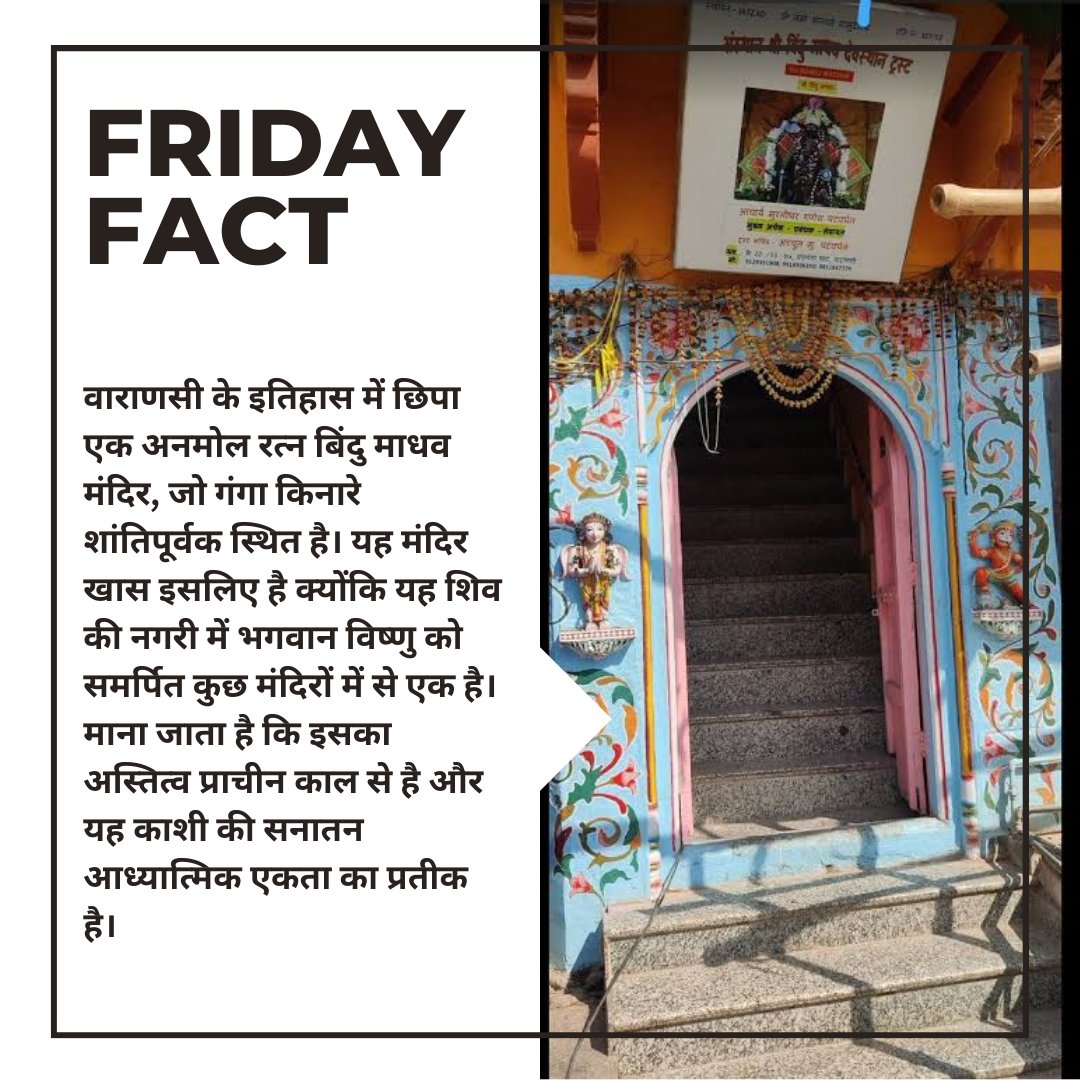 FRIDAY
FACT
वाराणसी के इतिहास में छिपा
एक अनमोल रत्न बिंदु माधव
मंदिर, जो गंगा किनारे
शांतिपूर्वक स्थित है। यह मंदिर
खास इसलिए है क्योंकि यह शिव
की नगरी में भगवान विष्णु को
समर्पित कुछ मंदिरों में से एक है।
माना जाता है कि इसका
अस्तित्व प्राचीन काल से है और
यह काशी की सनातन
आध्यात्मिक एकता का प्रतीक
है।
संस्थान श्री बिंदु माधव देवस्थान ट्रस्ट
आचार्य मुरलीधर गणेश पटवर्धन